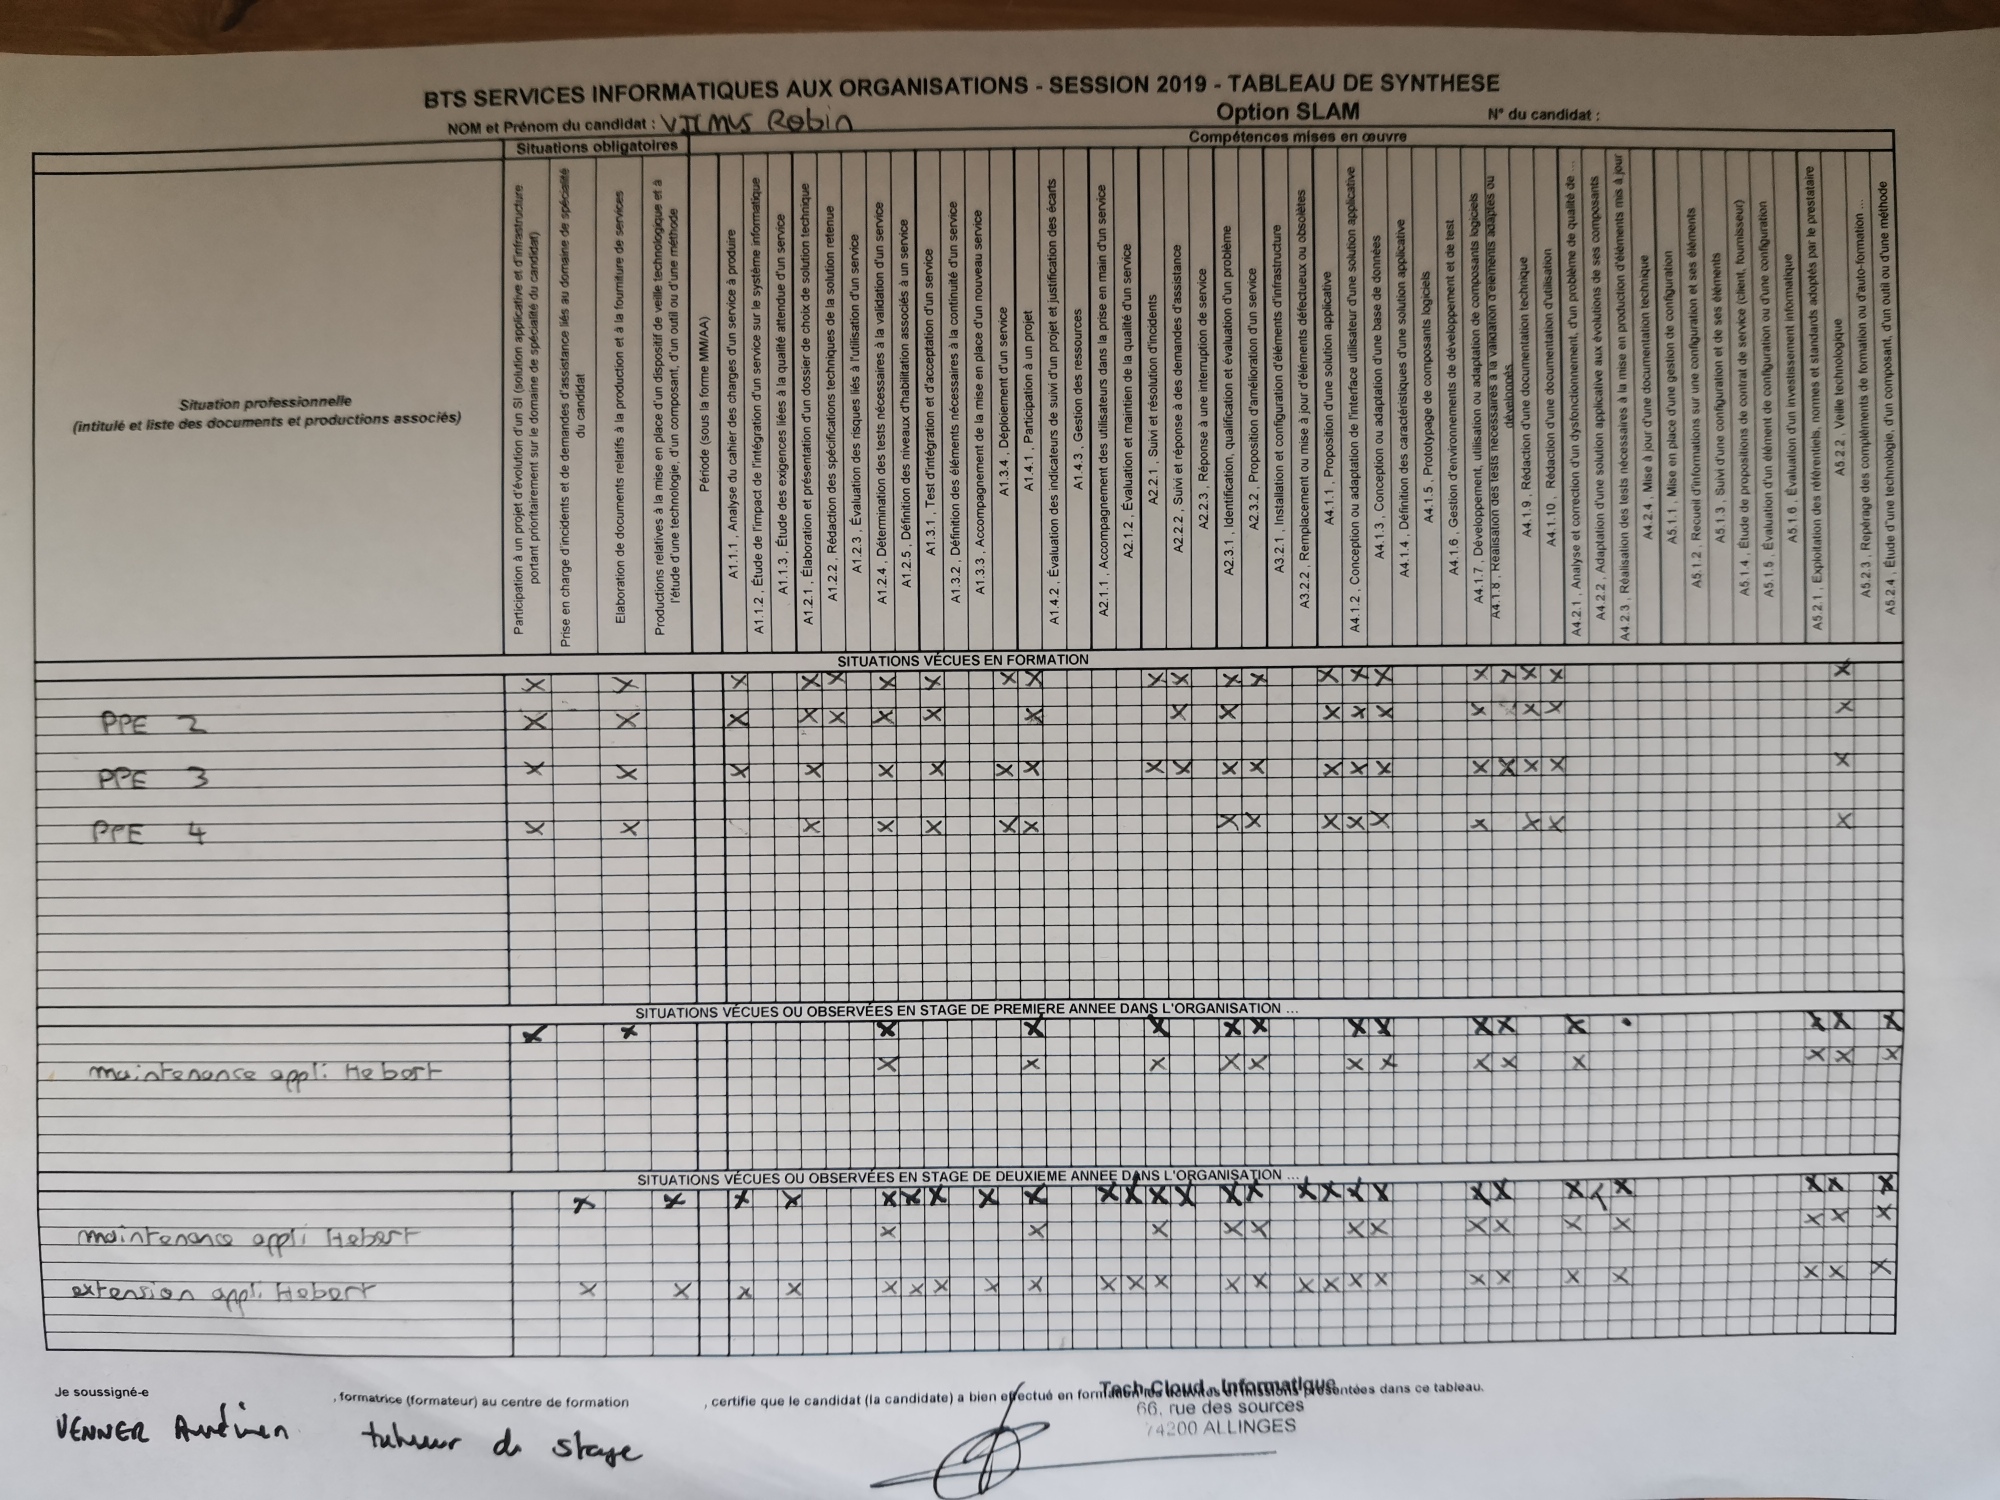 BTS SERVICES INFORMATIQUES AUX ORGANISATIONS - SESSION 2019 - TABLEAU DE SYNTHESE
NOM et Prénom du candidat : Robin
Option SLAM
N° du candidat :
Situations obligatoires
Compétences mises en œuvre
Situation professionnelle
(intitulé et liste des documents et productions associés)
Participation à un projet d'évolution d'un SI (solution applicative et d'infrastructure
portant prioritairement sur le domaine de spécialité du candidat)
Prise en charge d'incidents et de demandes d'assistance liés au domaine de spécialité
du candidat
Elaboration de documents relatifs à la production et à la fourniture de services
Productions relatives à la mise en place d'un dispositif de veille technologique et à
l'étude d'une technologie, d'un composant, d'un outil ou d'une méthode
Période (sous la forme MM/AA)
A1.1.1 , Analyse du cahier des charges d'un service à produire
A1.1.2 , Étude de l'impact de l'intégration d'un service sur le système informatique
A1.1.3 , Étude des exigences liées à la qualité attendue d'un service
A1.2.1 , Élaboration et présentation d'un dossier de choix de solution technique
A1.2.2 , Rédaction des spécifications techniques de la solution retenue
A1.2.3 , Évaluation des risques liés à l'utilisation d'un service
A1.2.4 , Détermination des tests nécessaires à la validation d'un service
A1.2.5 , Définition des niveaux d'habilitation associés à un service
A1.3.1 , Test d'intégration et d'acceptation d'un service
A1.3.2 , Définition des éléments nécessaires à la continuité d'un service
A1.3.3 , Accompagnement de la mise en place d'un nouveau service
A1.3.4 , Déploiement d'un service
A1.4.1 , Participation à un projet
A1.4.2 , Évaluation des indicateurs de suivi d'un projet et justification des écarts
A1.4.3 , Gestion des ressources
A2.1.1 , Accompagnement des utilisateurs dans la prise en main d'un service
A2.1.2 , Évaluation et maintien de la qualité d'un service
A2.2.1 , Suivi et résolution d'incidents
A2.2.2 , Suivi et réponse à des demandes d'assistance
A2.2.3 , Réponse à une interruption de service
A2.3.1 , Identification, qualification et évaluation d'un problème
A2.3.2 , Proposition d'amélioration d'un service
A3.2.1 , Installation et configuration d'éléments d'infrastructure
A3.2.2 , Remplacement ou mise à jour d'éléments défectueux ou obsolètes
A4.1.1 , Proposition d'une solution applicative
A4.1.2 , Conception ou adaptation de l'interface utilisateur d'une solution applicative
A4.1.3 , Conception ou adaptation d'une base de données
A4.1.4 , Définition des caractéristiques d'une solution applicative
A4.1.5 , Prototypage de composants logiciels
A4.1.6 , Gestion d'environnements de développement et de test
A4.1.7 , Développement, utilisation ou adaptation de composants logiciels
A4.1.8 , Réalisation des tests nécessaires à la validation d'éléments adaptés ou
développés
A4.1.9 , Rédaction d'une documentation technique
A4.1.10 , Rédaction d'une documentation d'utilisation
A4.2.1 , Analyse et correction d'un dysfonctionnement, d'un problème de qualité de ...
A4.2.2 , Adaptation d'une solution applicative aux évolutions de ses composants
A4.2.3 , Réalisation des tests nécessaires à la mise en production d'éléments mis à jour
A4.2.4 , Mise à jour d'une documentation technique
A5.1.1 , Mise en place d'une gestion de configuration
A5.1.2 , Recueil d'informations sur une configuration et ses éléments
A5.1.3 , Suivi d'une configuration et de ses éléments
A5.1.4 , Étude de propositions de contrat de service (client, fournisseur)
A5.1.5 , Évaluation d'un élément de configuration ou d'une configuration
A5.1.6 , Évaluation d'un investissement informatique
A5.2.1 , Exploitation des référentiels, normes et standards adoptés par le prestataire
A5.2.2 , Veille technologique
A5.2.3 , Repérage des compléments de formation ou d'auto-formation ...
A5.2.4 , Étude d'une technologie, d'un composant, d'un outil ou d'une méthode
SITUATIONS VÉCUES EN FORMATION
PPE 2
PPE 3
PPE 4
SITUATIONS VÉCUES OU OBSERVÉES EN STAGE DE PREMIERE ANNEE DANS L'ORGANISATION ...
maintenance appli Hebert
SITUATIONS VÉCUES OU OBSERVÉES EN STAGE DE DEUXIEME ANNEE DANS L'ORGANISATION ...
maintenance appli Hebert
extension appli Hebert
Je soussigné-e , formatrice (formateur) au centre de formation , certifie que le candidat (la candidate) a bien effectué en formation les activités et missions présentées dans ce tableau.
VENNER tuteur de stage
Tech-Cloud - Informatique
66, rue des sources
74200 ALLINGES